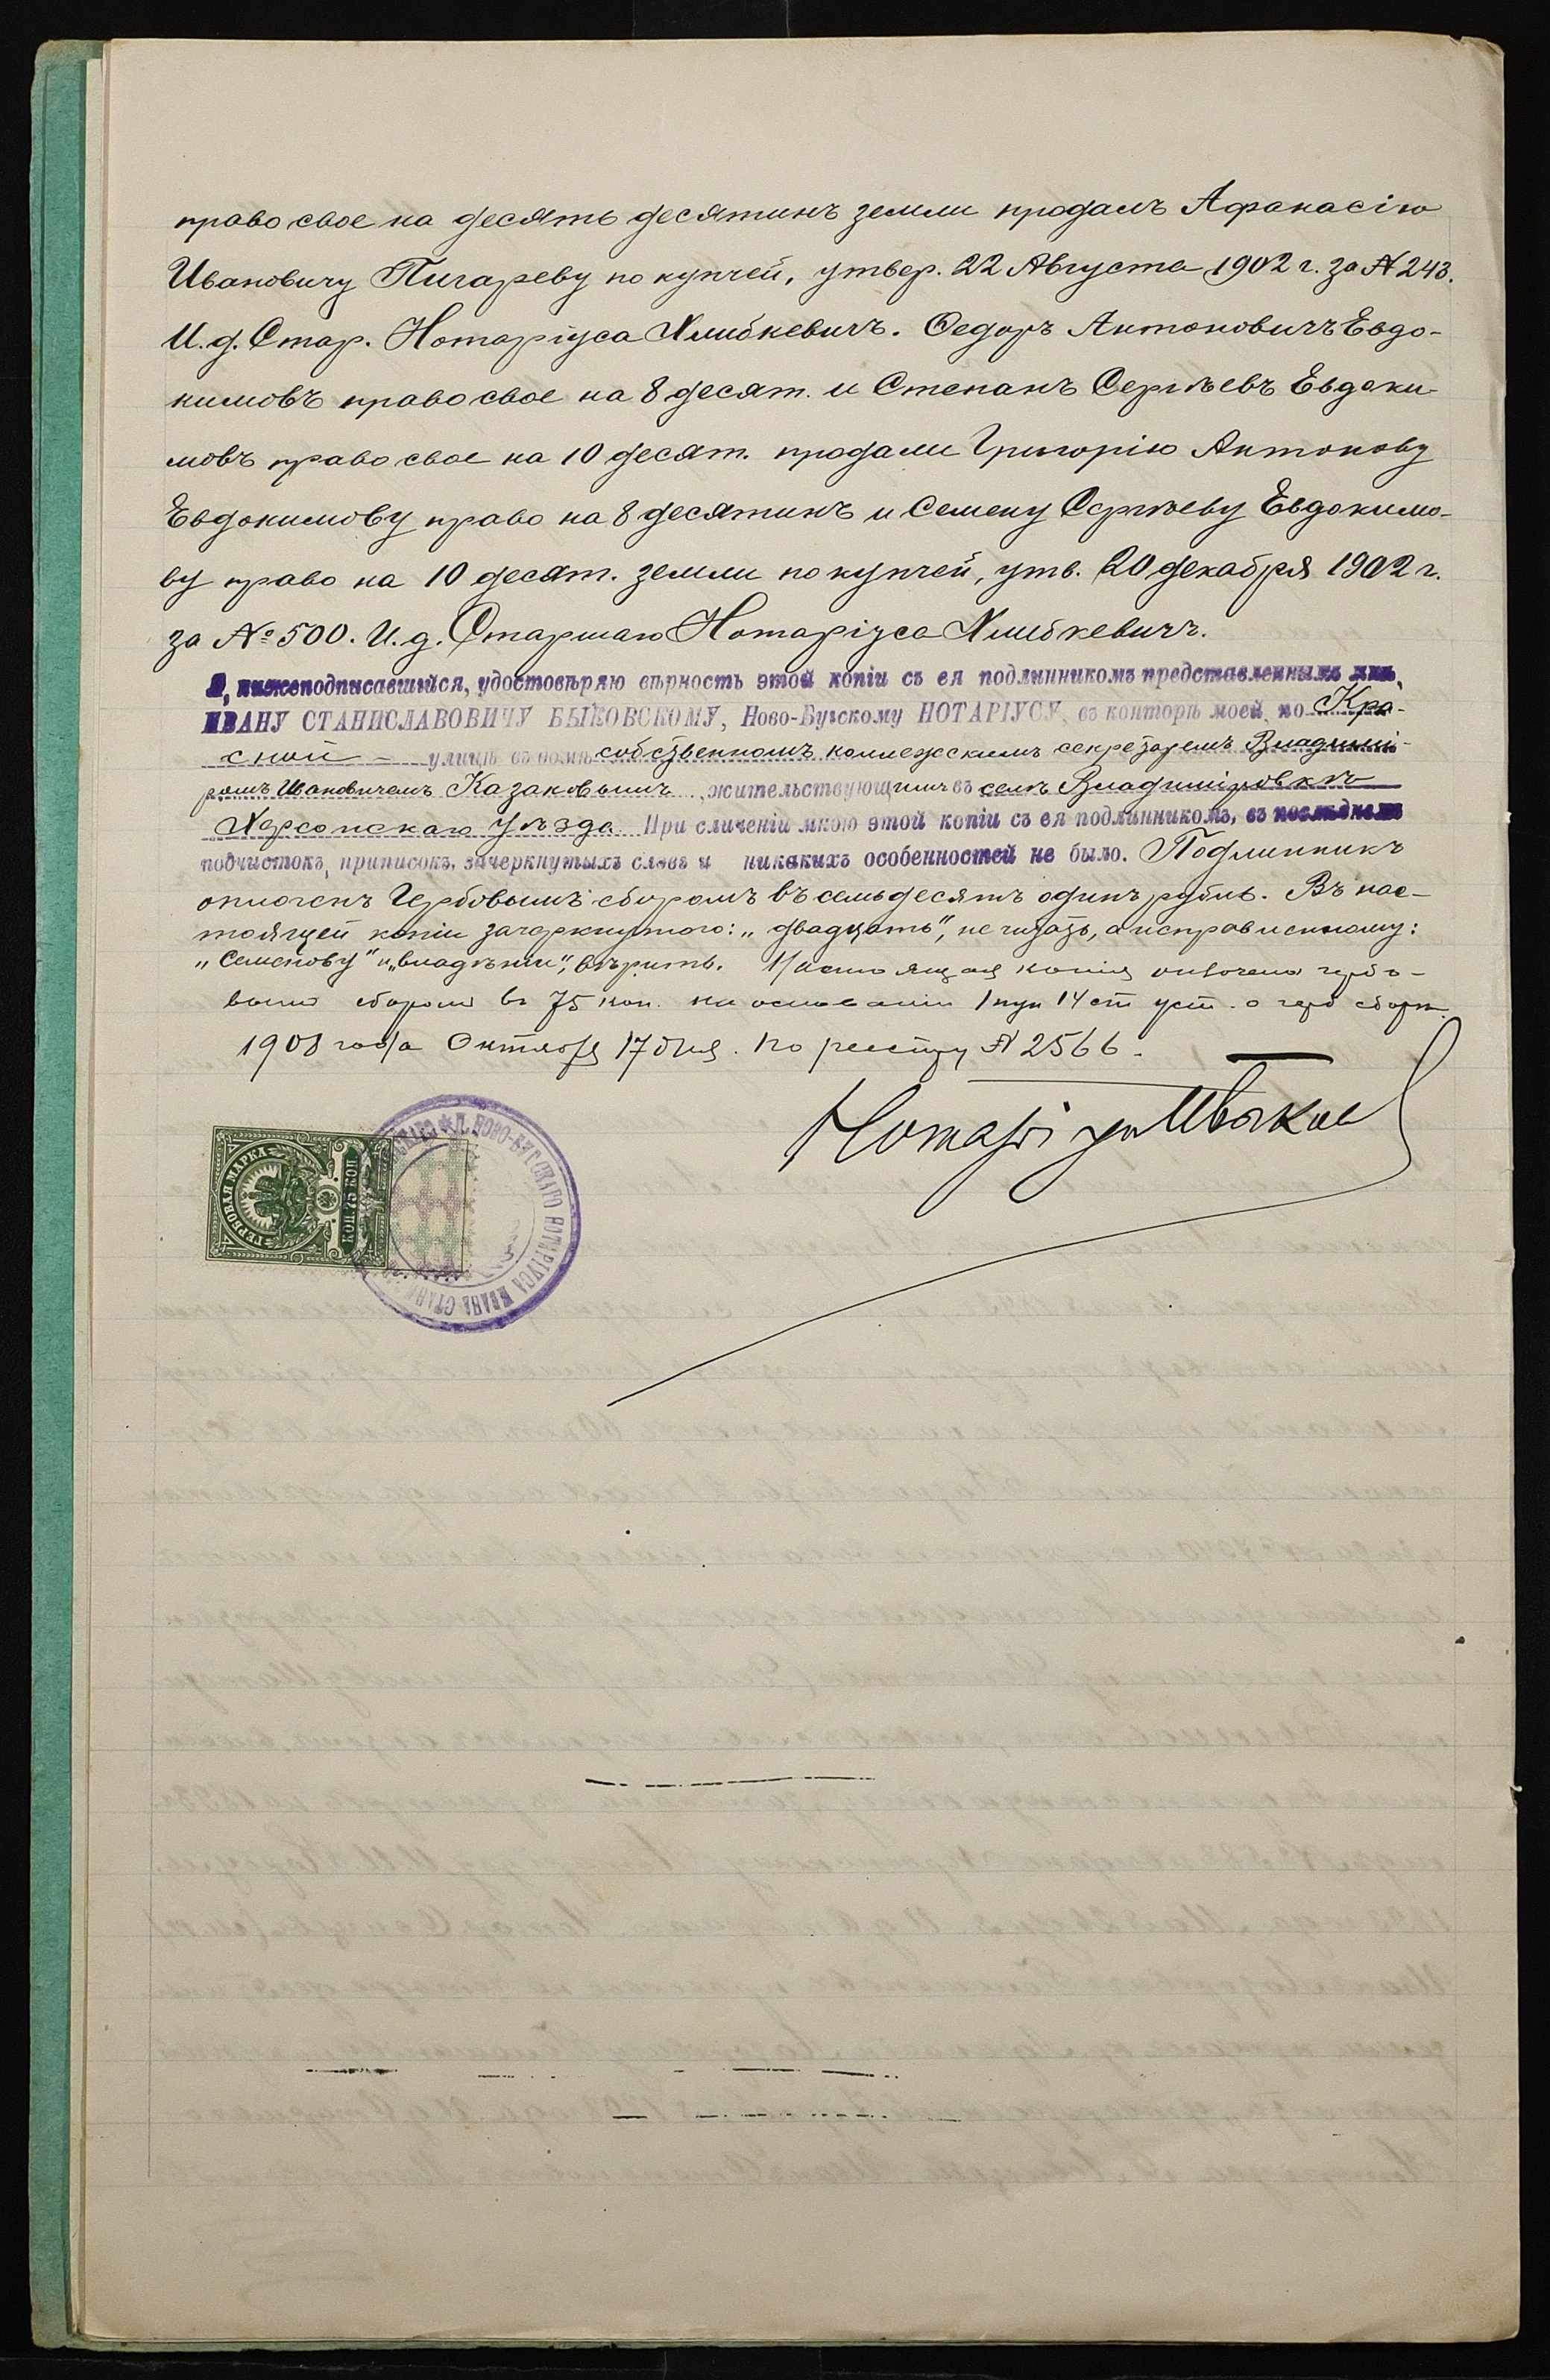 право свое на десять десятинъ земли продалъ Афанасію
Ивановичу Пигареву по купчей, утвер. 22 Августа 1902 г. за № 243.
И. д. Стар. Нотаріуса Хлибкевичъ. Ѳедоръ Антоновичъ Евдо-
кимовъ право свое на 8 десят. и Степанъ Сергѣевъ Евдоки-
мовъ право свое на 10 десят. продали Григорію Антонову
Евдокимову право на 8 десятинъ и Семену Сергѣеву Евдокимо-
ву право на 10 десят. земли по купчей, утв. 20 декабря 1902 г.
за № 500. И. д. Старшаго Нотаріуса Хлибкевичъ.
Я, нижеподписавшійся, удостовѣряю вѣрность этой копіи съ ея подлинникомъ представленнымъ мнѣ,
ИВАНУ СТАНИСЛАВОВИЧУ БЫКОВСКОМУ, Ново-Бугскому НОТАРІУСУ, въ конторѣ моей, по Кра-
сной улицѣ въ домѣ собственномъ коллежскимъ секретаремъ Владимі-
ромъ Ивановичемъ Казаковымъ, жительствующимъ въ селѣ Владиміровкѣ
Херсонскаго уѣзда. При сличеніи мною этой копіи съ ея подлинникомъ, въ послѣднемъ
подчистокъ, приписокъ, зачеркнутыхъ словъ и никакихъ особенностей не было. Подлинникъ
оплоченъ Гербовымъ сборомъ въ семьдесятъ одинъ рубль. Въ нас-
тоящей копіи зачеркнутого: „двадцать", не читать, а исправленному:
„Семенову" и „владѣніи", вѣрить. Настоящая копія оплочена гербо-
вымъ сборомъ въ 75 коп. на основаніи 1 пун 14 ст уст. о герб сборѣ.
1908 года Октября 17 дня. По реестру № 2566.
Нотаріусъ ИБыков
ГЕРБОВАЯ МАРКА
75 КОП
П. НОВО-БУГСКАГО НОТАРІУСА ИВАНА